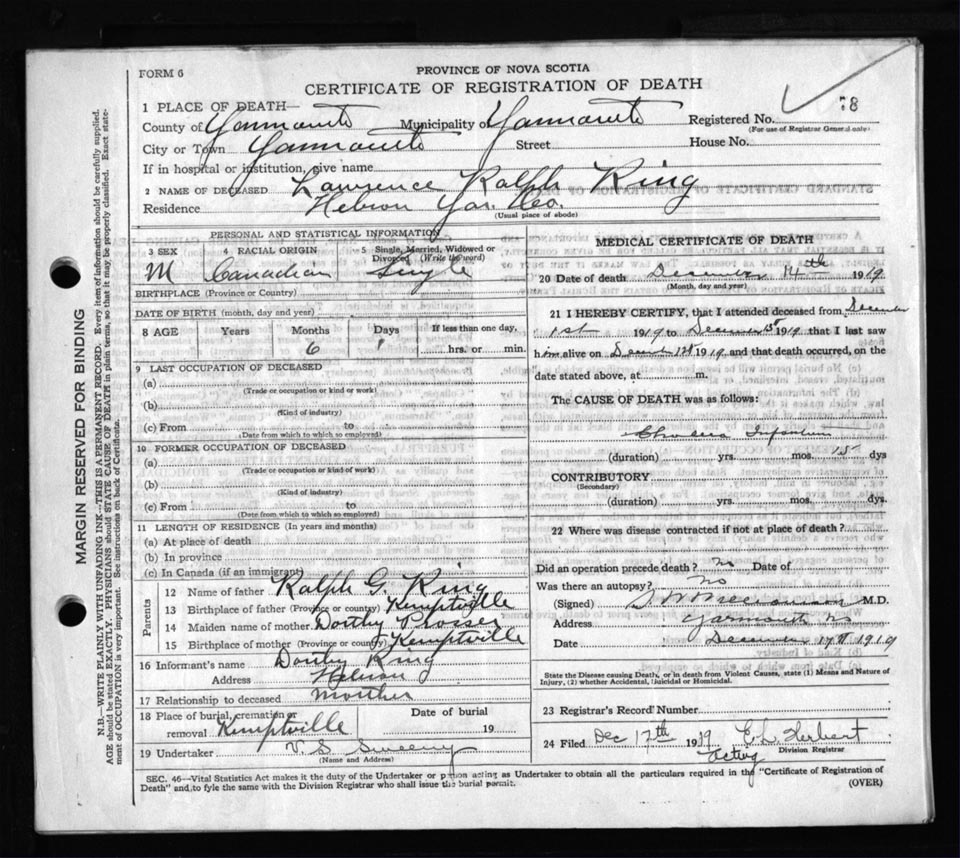 FORM 6
PROVINCE OF NOVA SCOTIA
CERTIFICATE OF REGISTRATION OF DEATH
78
1 PLACE OF DEATH—
County of Yarmouth Municipality of Yarmouth Registered No.
(For use of Registrar General only)
City or Town Yarmouth Street House No.
If in hospital or institution, give name
2 NAME OF DECEASED Lawrence Ralph Ring
Residence Hebron Yar. Co.
(Usual place of abode)
PERSONAL AND STATISTICAL INFORMATION
3 SEX 4 RACIAL ORIGIN 5 Single, Married, Widowed or
Divorced (Write the word)
M Canadian Single
BIRTHPLACE (Province or Country)
DATE OF BIRTH (month, day and year)
8 AGE Years Months Days If less than one day,
6 1 hrs. or min.
9 LAST OCCUPATION OF DECEASED
(a)
(Trade or occupation or kind or work)
(b)
(Kind of industry)
(c) From to
(Date from which to which so employed)
10 FORMER OCCUPATION OF DECEASED
(a)
(Trade or occupation or kind of work)
(b)
(Kind of industry)
(c) From to
(Date from which to which so employed)
11 LENGTH OF RESIDENCE (In years and months)
(a) At place of death
(b) In province
(c) In Canada (if an immigrant)
Parents
12 Name of father Ralph G. Ring
13 Birthplace of father (Province or country) Kemptville
14 Maiden name of mother Dorthy Prosser
15 Birthplace of mother (Province or country) Kemptville
16 Informant's name Dorthy Ring
Address Hebron
17 Relationship to deceased Mother
18 Place of burial, cremation or removal Kemptville Date of burial 19
19 Undertaker V. S. Sweeny
(Name and Address)
MEDICAL CERTIFICATE OF DEATH
20 Date of death December 14th 1919
(Month, day and year)
21 I HEREBY CERTIFY, that I attended deceased from December
1st 1919 to December 13th 1919 that I last saw
him alive on 1919 and that death occurred, on the
date stated above, at m.
The CAUSE OF DEATH was as follows:
Cholera Infantum
(duration) yrs. mos. 15 dys
CONTRIBUTORY
(Secondary)
(duration) yrs. mos. dys.
22 Where was disease contracted if not at place of death?
Did an operation precede death? No Date of
Was there an autopsy? No
(Signed) M.D.
Address Yarmouth NS
Date December 17th 1919
State the Disease causing Death, or in death from Violent Causes, state (1) Means and Nature of
Injury, (2) whether Accidental, Suicidal or Homicidal.
23 Registrar's Record Number
24 Filed Dec 17th 1919 E. L. Herbert
Division Registrar
Acting
SEC. 46—Vital Statistics Act makes it the duty of the Undertaker or person acting as Undertaker to obtain all the particulars required in the "Certificate of Registration of
Death" and to fyle the same with the Division Registrar who shall issue the burial permit. (OVER)
MARGIN RESERVED FOR BINDING
N.B.—WRITE PLAINLY WITH UNFADING INK—THIS IS A PERMANENT RECORD. Every item of information should be carefully supplied.
AGE should be stated EXACTLY. PHYSICIANS should STATE CAUSE OF DEATH in plain terms, so that it may be properly classified. Exact state-
ment of OCCUPATION is very important. See instructions on back of Certificate.